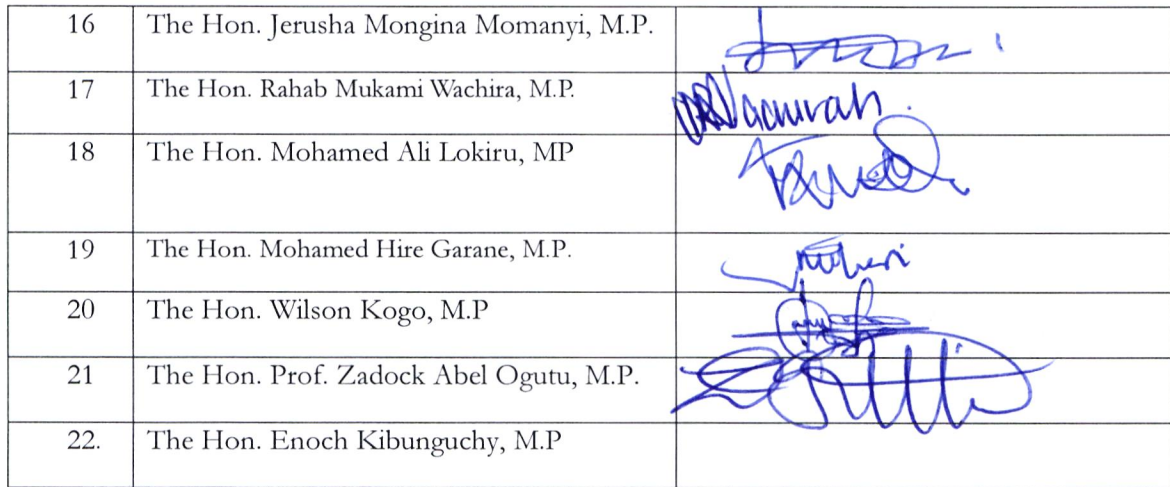 16 The Hon. Jerusha Mongina Momanyi, M.P.
17 The Hon. Rahab Mukami Wachira, M.P.
18 The Hon. Mohamed Ali Lokiru, MP
19 The Hon. Mohamed Hire Garane, M.P.
20 The Hon. Wilson Kogo, M.P
21 The Hon. Prof. Zadock Abel Ogutu, M.P.
22. The Hon. Enoch Kibunguchy, M.P